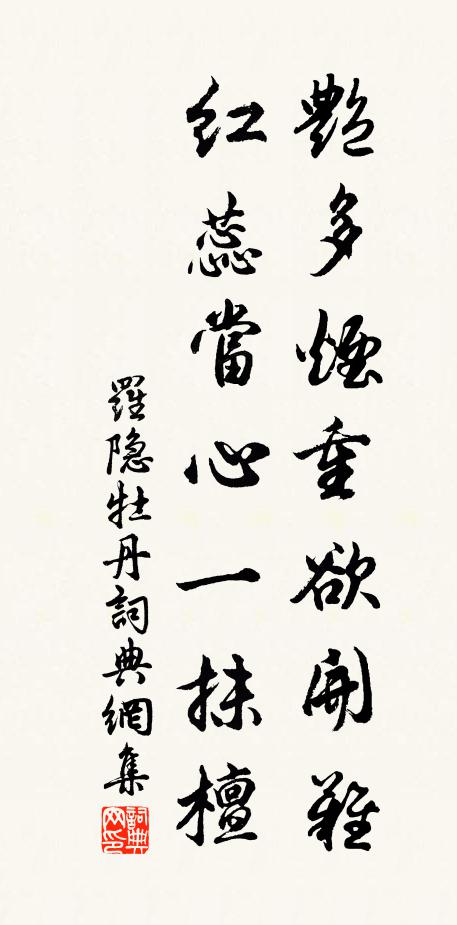 艷多煙重欲開難
紅蕊當心一抹檀
羅隐牡丹詞典網集
詞典网印